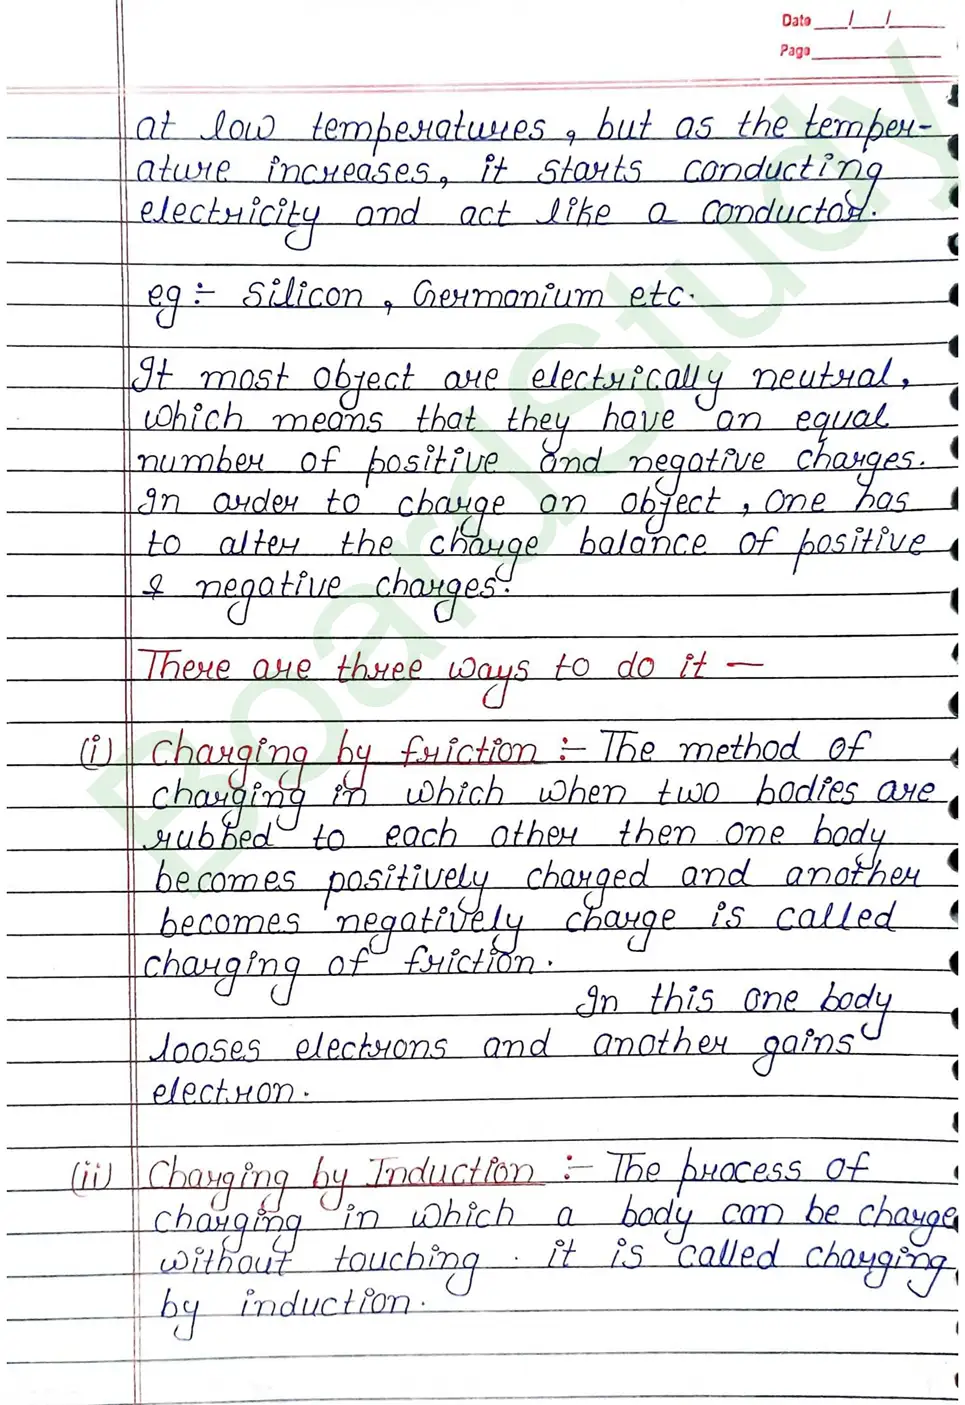 Date __/__/__
Page
at low temperatures, but as the temper-
ature increases, it starts conducting
electricity and act like a conductor.
eg :- Silicon, Germanium etc.
It most object are electrically neutral,
which means that they have an equal
number of positive and negative charges.
In order to charge an object, one has
to alter the charge balance of positive
& negative charges.
There are three ways to do it —
(i) Charging by friction :- The method of
charging in which when two bodies are
rubbed to each other then one body
becomes positively charged and another
becomes negatively charge is called
charging of friction.
In this one body
looses electrons and another gains
electron.
(ii) Charging by Induction :- The process of
charging in which a body can be charge
without touching. it is called charging
by induction.
BoardStudy